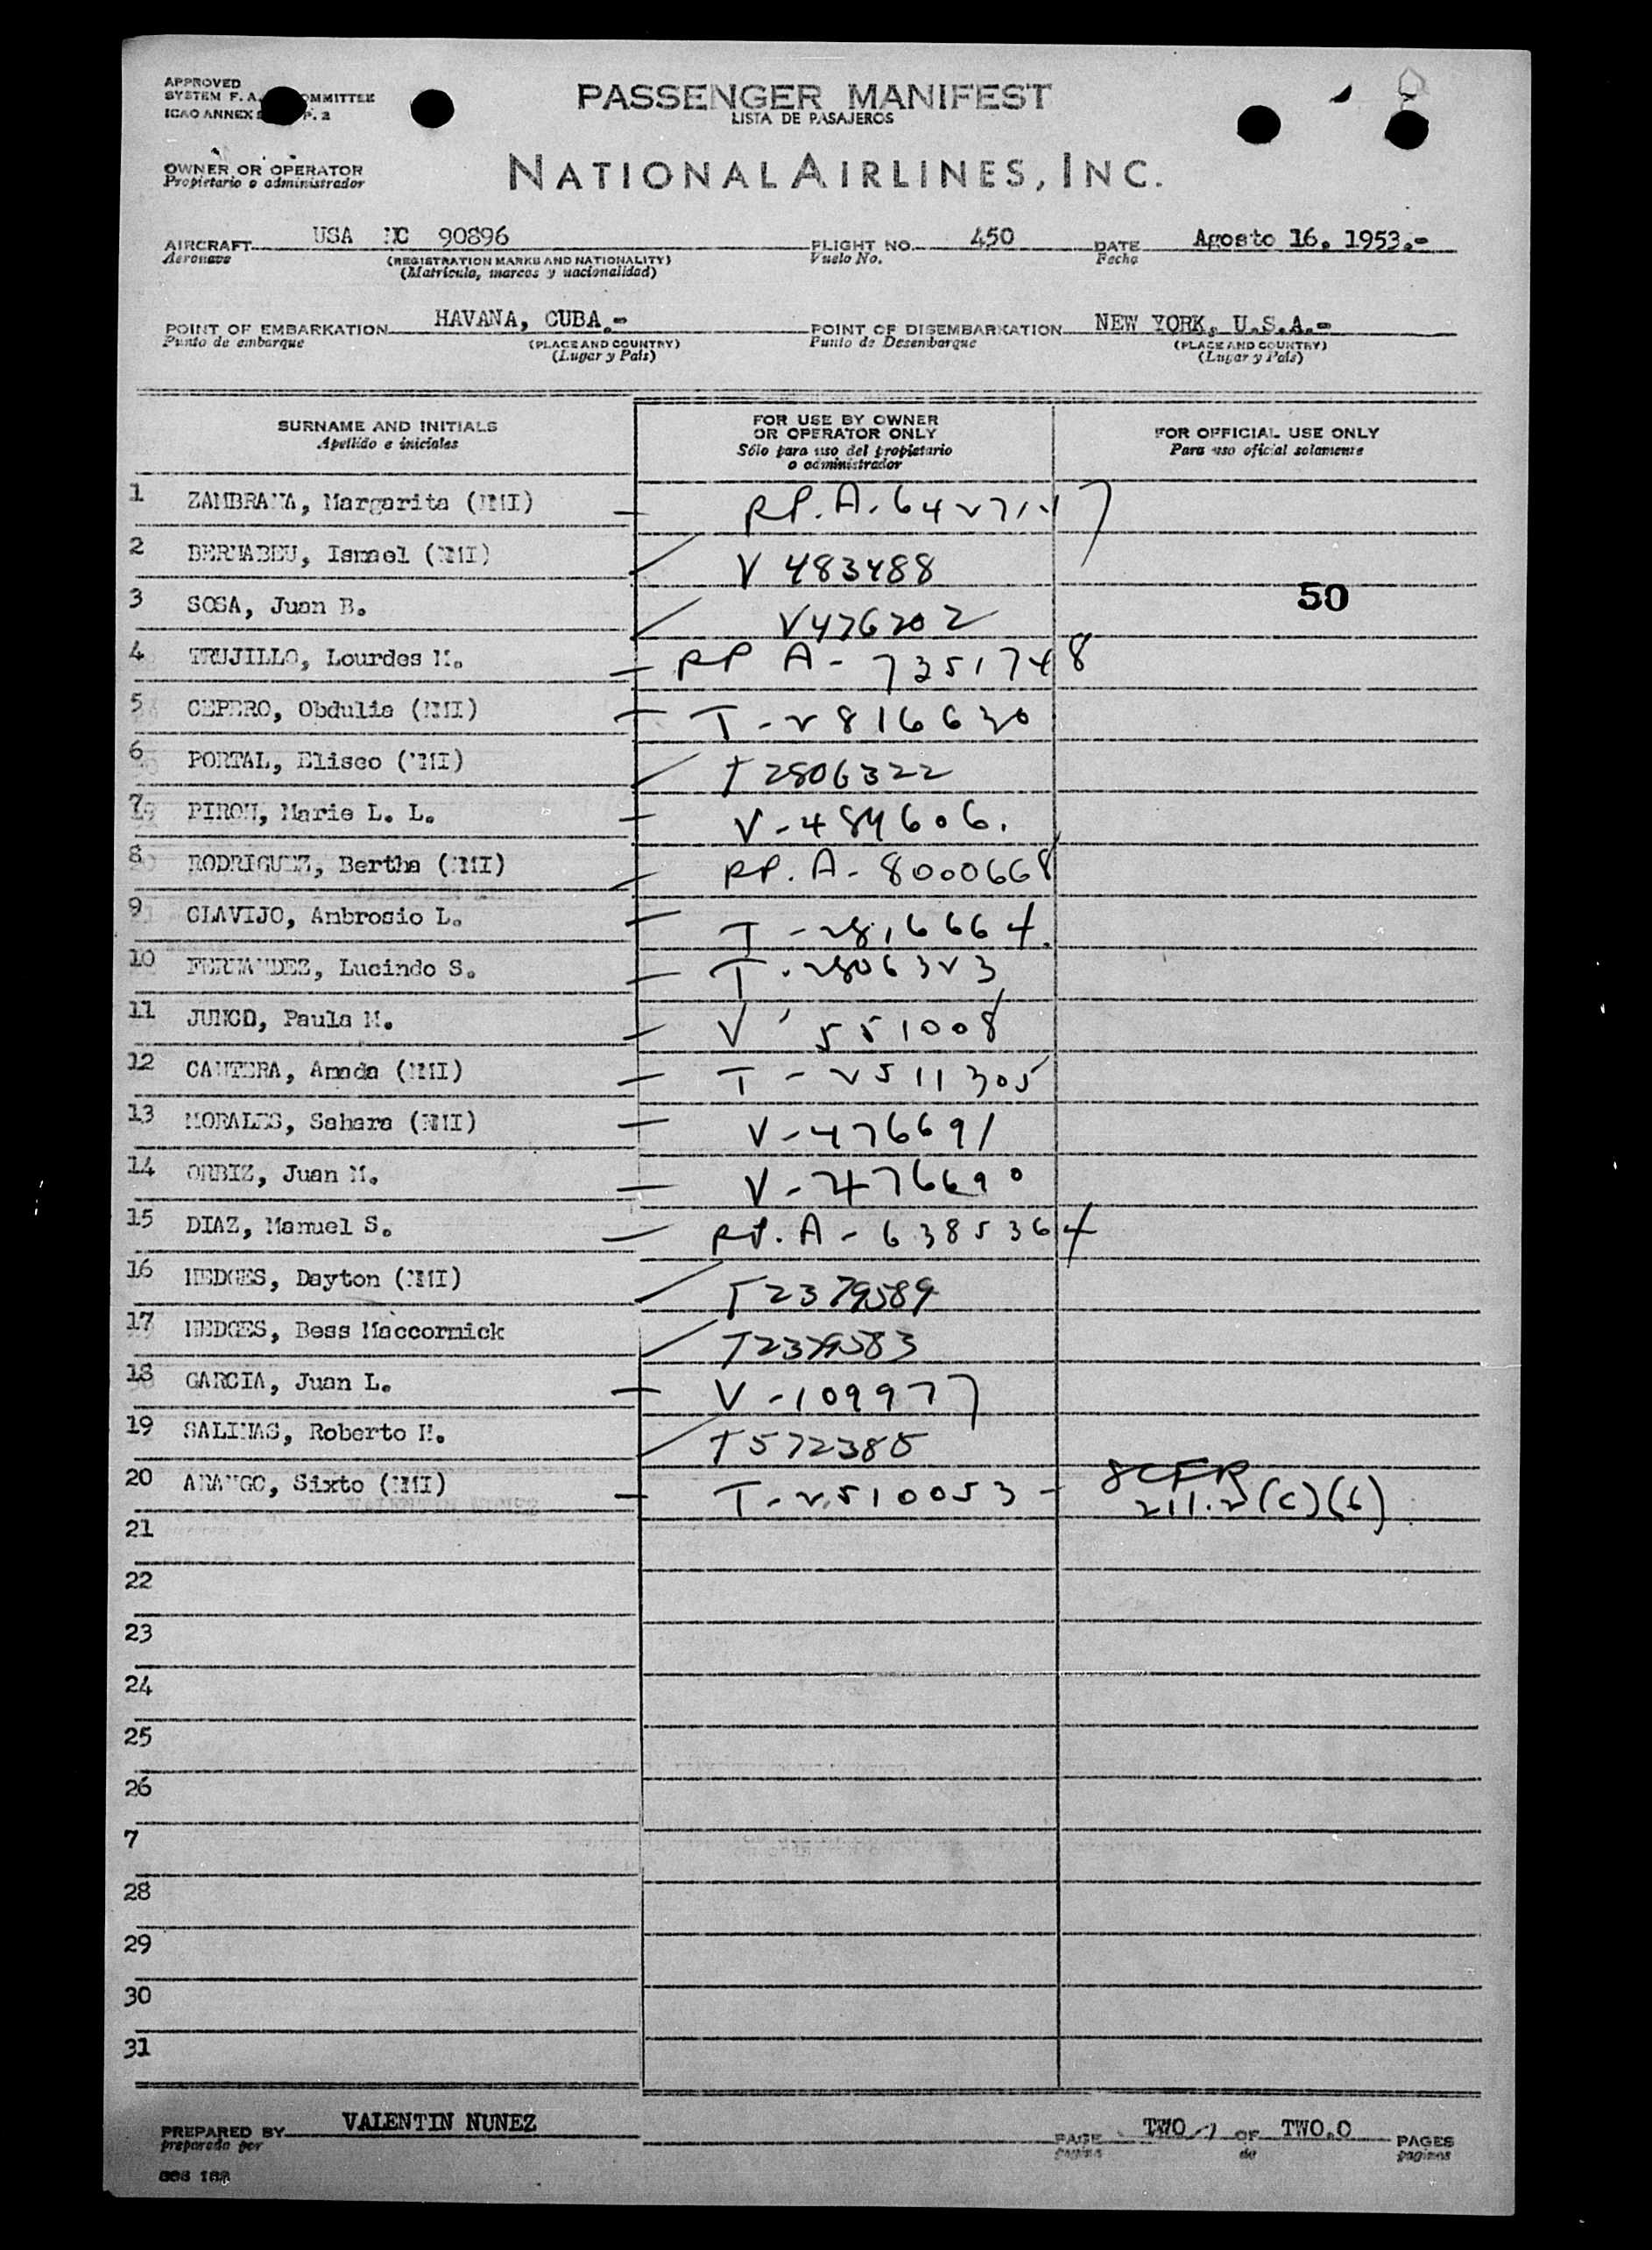 APPROVED
SYSTEM F. A. COMMITTEE
ICAO ANNEX P. 2
PASSENGER MANIFEST
LISTA DE PASAJEROS
OWNER OR OPERATOR
Propietario o administrador
NATIONAL AIRLINES, INC.
AIRCRAFT USA NC 90896 FLIGHT NO. 450 DATE Agosto 16, 1953.-
Aeronave (REGISTRATION MARKS AND NATIONALITY) Vuelo No. Fecha
(Matricula, marcos y nacionalidad)
POINT OF EMBARKATION HAVANA, CUBA.- POINT OF DISEMBARKATION NEW YORK, U.S.A.-
Punto de embarque (PLACE AND COUNTRY) Punto de Desembarque (PLACE AND COUNTRY)
(Lugar y País) (Lugar y País)
SURNAME AND INITIALS
Apellido e iniciales
FOR USE BY OWNER
OR OPERATOR ONLY
Sólo para uso del propietario
o administrador
FOR OFFICIAL USE ONLY
Para uso oficial solamente
1 ZAMBRANA, Margarita (NMI) RP. A-
2 BERNABEU, Ismael (NMI) V 483488
3 SOSA, Juan B. V476202
50
4 TRUJILLO, Lourdes M. RP A-7351748
5 CEPERO, Obdulia (NMI) T-2816630
6 PORTAL, Eliseo (NMI) T2806322
7 PIRON, Marie L. L. V-484606.
8 RODRIGUEZ, Bertha (NMI) RP. A-8000668
9 CLAVIJO, Ambrosio L. T-2816664.
10 FERNANDEZ, Lucindo S. T-2806323
11 JUNOD, Paula M. V-551008
12 CANTERA, Amada (NMI) T-2511305
13 MORALES, Sahara (NMI) V-476691
14 ORBIZ, Juan M. V-476690
15 DIAZ, Manuel S. RP. A-6385364
16 HEDGES, Dayton (NMI) T2379589
17 HEDGES, Bess Maccormick T2379583
18 GARCIA, Juan L. V-109977
19 SALINAS, Roberto H. T572385
20 ARANGO, Sixto (NMI) T-2510053 - 8CFR
211.2(c)(6)
21
22
23
24
25
26
7
28
29
30
31
PREPARED BY VALENTIN NUNEZ PAGE TWO OF TWO.O PAGES
preparado por pagina de paginas